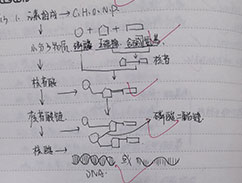 1. 元素组成→C.H.O.N.P
小分子物质 磷酸 五碳糖 含氮碱基
核苷
核苷酸
核苷酸链
磷酸二酯键
核酸
或
DNA